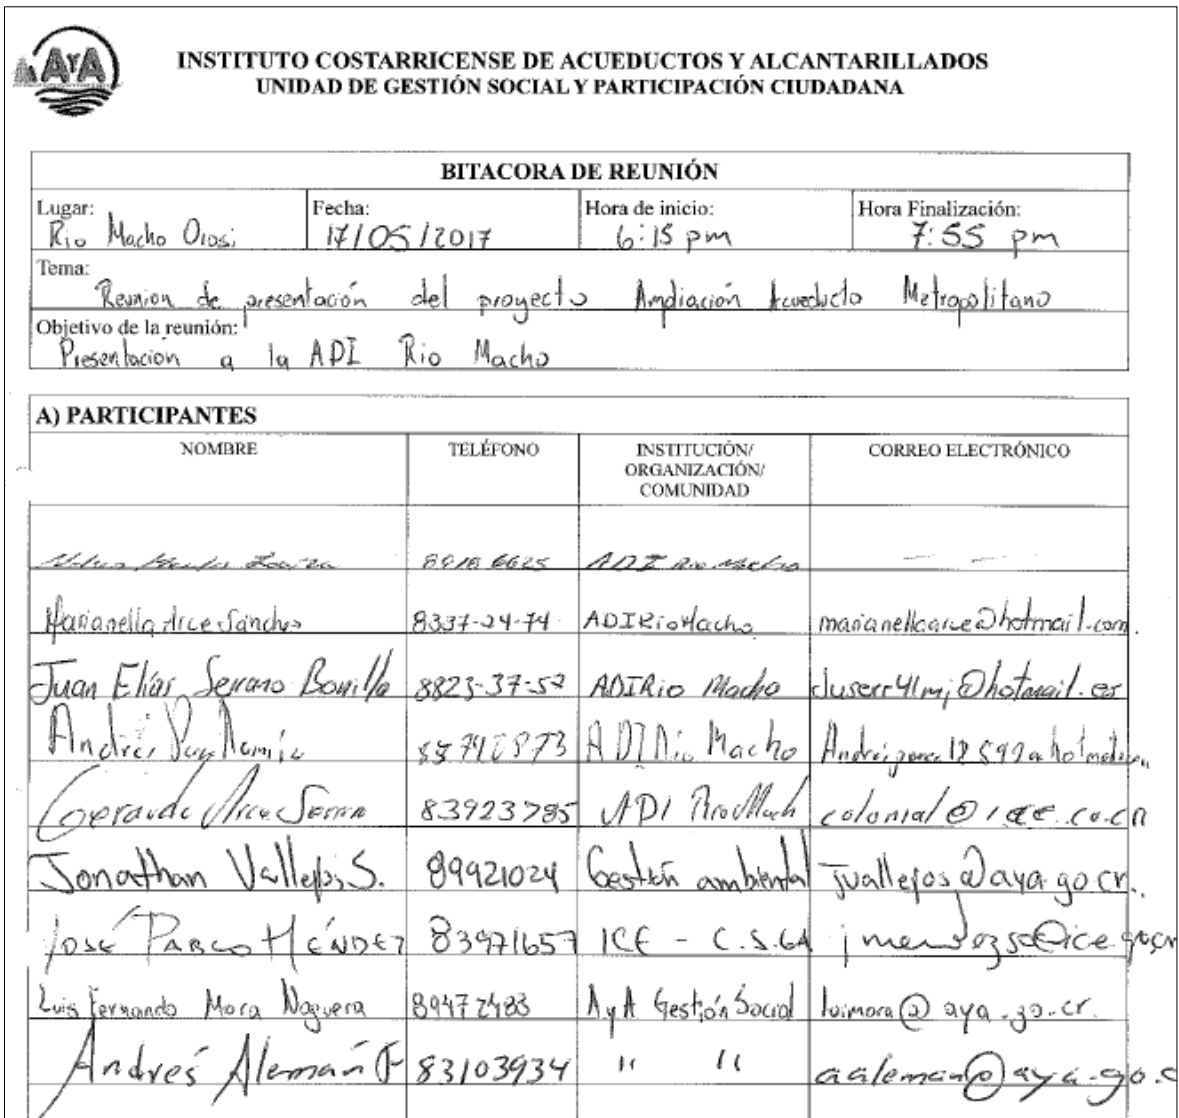 AyA
INSTITUTO COSTARRICENSE DE ACUEDUCTOS Y ALCANTARILLADOS
UNIDAD DE GESTIÓN SOCIAL Y PARTICIPACIÓN CIUDADANA
BITACORA DE REUNIÓN
Lugar: Fecha: Hora de inicio: Hora Finalización:
Rio Macho Orosi 17/05/2017 6:15 pm 7:55 pm
Tema:
Reunion de presentación del proyecto Ampliación Acueducto Metropolitano
Objetivo de la reunión:
Presentacion a la ADI Rio Macho
A) PARTICIPANTES
NOMBRE TELÉFONO INSTITUCIÓN/ CORREO ELECTRÓNICO
ORGANIZACIÓN/
COMUNIDAD
ADI Rio Macho — —
Marianella Arce Sánchez 8337-24-74 ADI Rio Macho marianellaarce@hotmail.com.
Juan Elías Serrano Bonilla 8823-37-52 ADI Rio Macho @hotmail.es
Andrés ADI Rio Macho
Gerardo Arce Serrano 83923785 ADI Rio Mach colonial@ice.co.cr
Jonathan Vallejos S. 89921024 Gestión ambiental jvallejos@aya.go.cr.
José Pablo Méndez 83971657 ICE - C.S.GA
Luis Fernando Mora Noguera 89472483 AyA Gestión Social luimora@aya.go.cr.
Andrés Alemán F 83103934 " " aaleman@aya.go.c